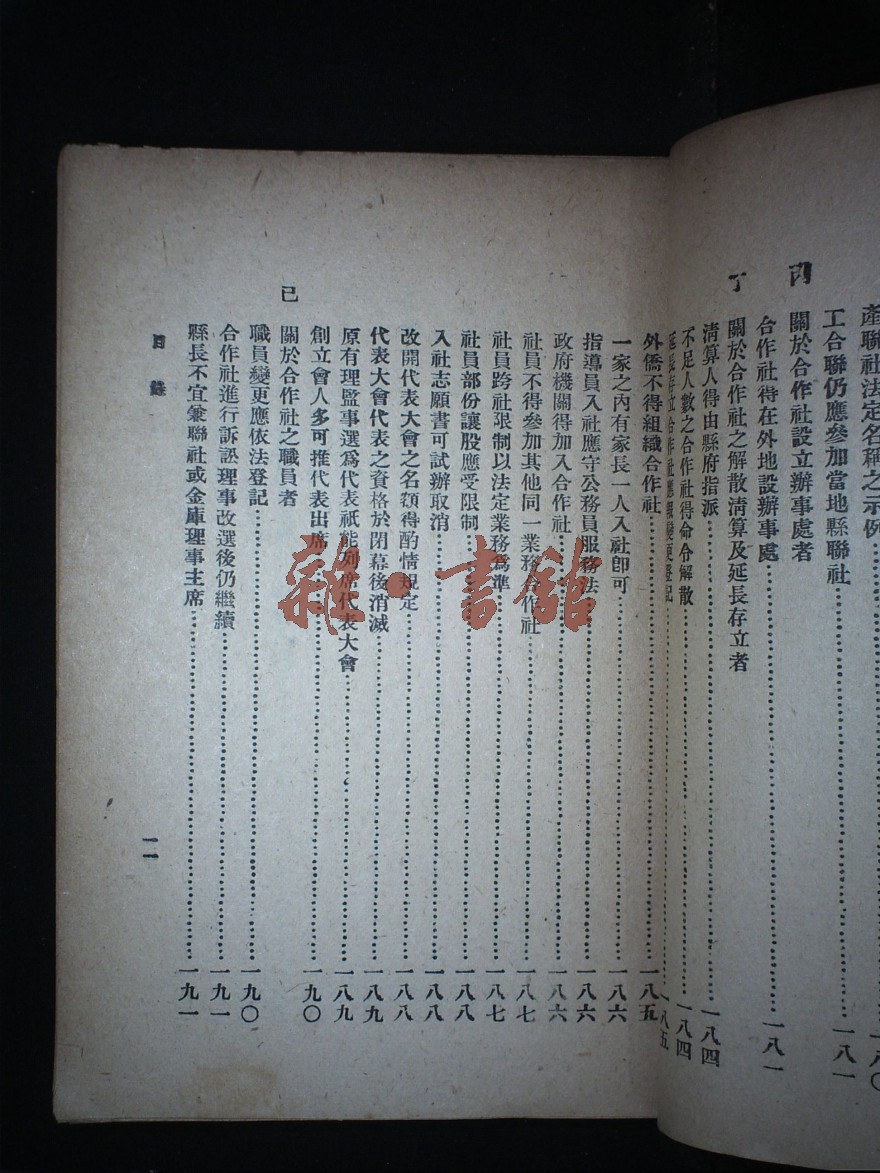 產聯社法定名稱之示例……一八〇
工合聯仍應參加當地縣聯社……一八一
丙 關於合作社設立辦事處者
合作社得在外地設辦事處……一八一
丁 關於合作社之解散清算及延長存立者
清算人得由縣府指派……一八四
不足人數之合作社得命令解散……一八四
延長存立合作社應報變更登記……一八五
外僑不得組織合作社……一八五
一家之內有家長一人入社卽可……一八六
指導員入社應守公務員服務法……一八六
政府機關得加入合作社……一八六
社員不得參加其他同一業務合作社……一八七
社員跨社限制以法定業務爲準……一八七
社員部份讓股應受限制……一八八
入社志願書可試辦取消……一八八
改開代表大會之名額得酌情規定……一八八
代表大會代表之資格於閉幕後消滅……一八九
原有理監事選爲代表祇能列席代表大會……一八九
創立會人多可推代表出席……一九〇
己 關於合作社之職員者
職員變更應依法登記……一九〇
合作社進行訴訟理事改選後仍繼續……一九一
縣長不宜兼聯社或金庫理事主席……一九一
目錄
一一
雜·書館